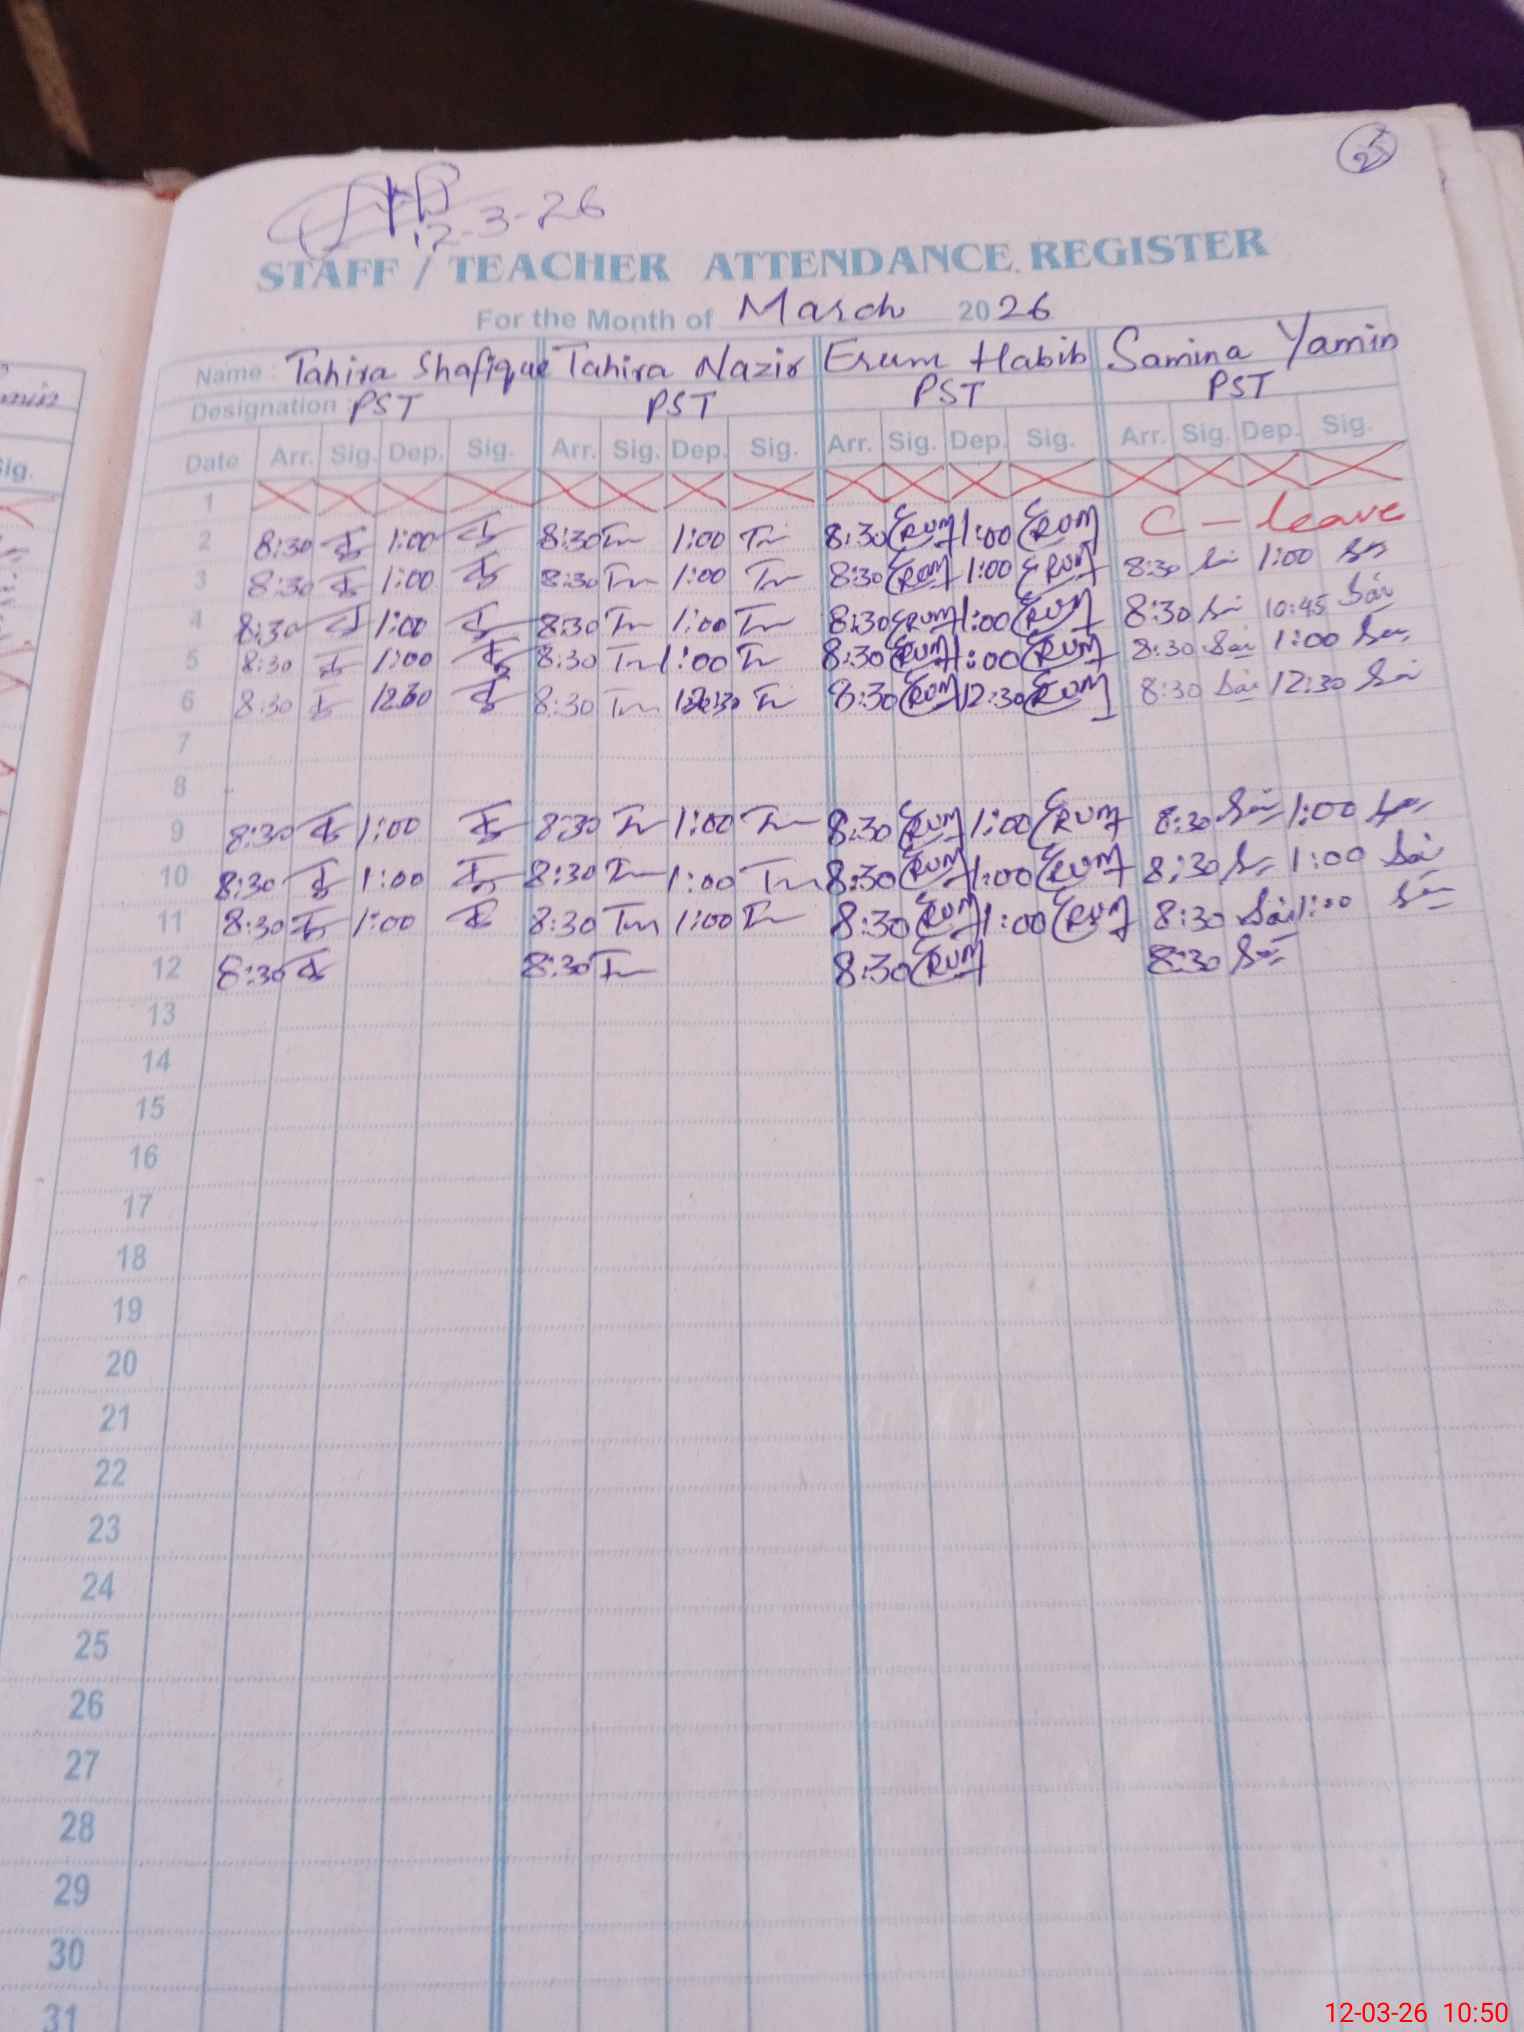 25
12-3-26
STAFF / TEACHER ATTENDANCE REGISTER
For the Month of March 2026
Name: Tahira Shafique Tahira Nazir Erum Habib Samina Yamin
Designation PST PST PST PST
Date Arr. Sig. Dep. Sig. Arr. Sig. Dep. Sig. Arr. Sig. Dep. Sig. Arr. Sig. Dep. Sig.
1
2 8:30 1:00 8:30 Tn 1:00 Tn 8:30 ERUM 1:00 ERUM C - leave
3 8:30 1:00 8:30 Tn 1:00 Tn 8:30 ERUM 1:00 ERUM 8:30 1:00
4 8:30 1:00 8:30 Tn 1:00 Tn 8:30 ERUM 1:00 ERUM 8:30 10:45
5 8:30 1:00 8:30 Tn 1:00 Tn 8:30 ERUM 1:00 ERUM 8:30 1:00
6 8:30 8:30 Tn Tn 8:30 ERUM 12:30 ERUM 8:30 12:30
7
8
9 8:30 1:00 8:30 Tn 1:00 Tn 8:30 ERUM 1:00 ERUM 8:30 1:00
10 8:30 1:00 8:30 Tn 1:00 Tn 8:30 ERUM 1:00 ERUM 8:30 1:00
11 8:30 1:00 8:30 Tn 1:00 Tn 8:30 ERUM 1:00 ERUM 8:30 1:00
12 8:30 8:30 Tn 8:30 ERUM 8:30
13
14
15
16
17
18
19
20
21
22
23
24
25
26
27
28
29
30
31
12-03-26 10:50